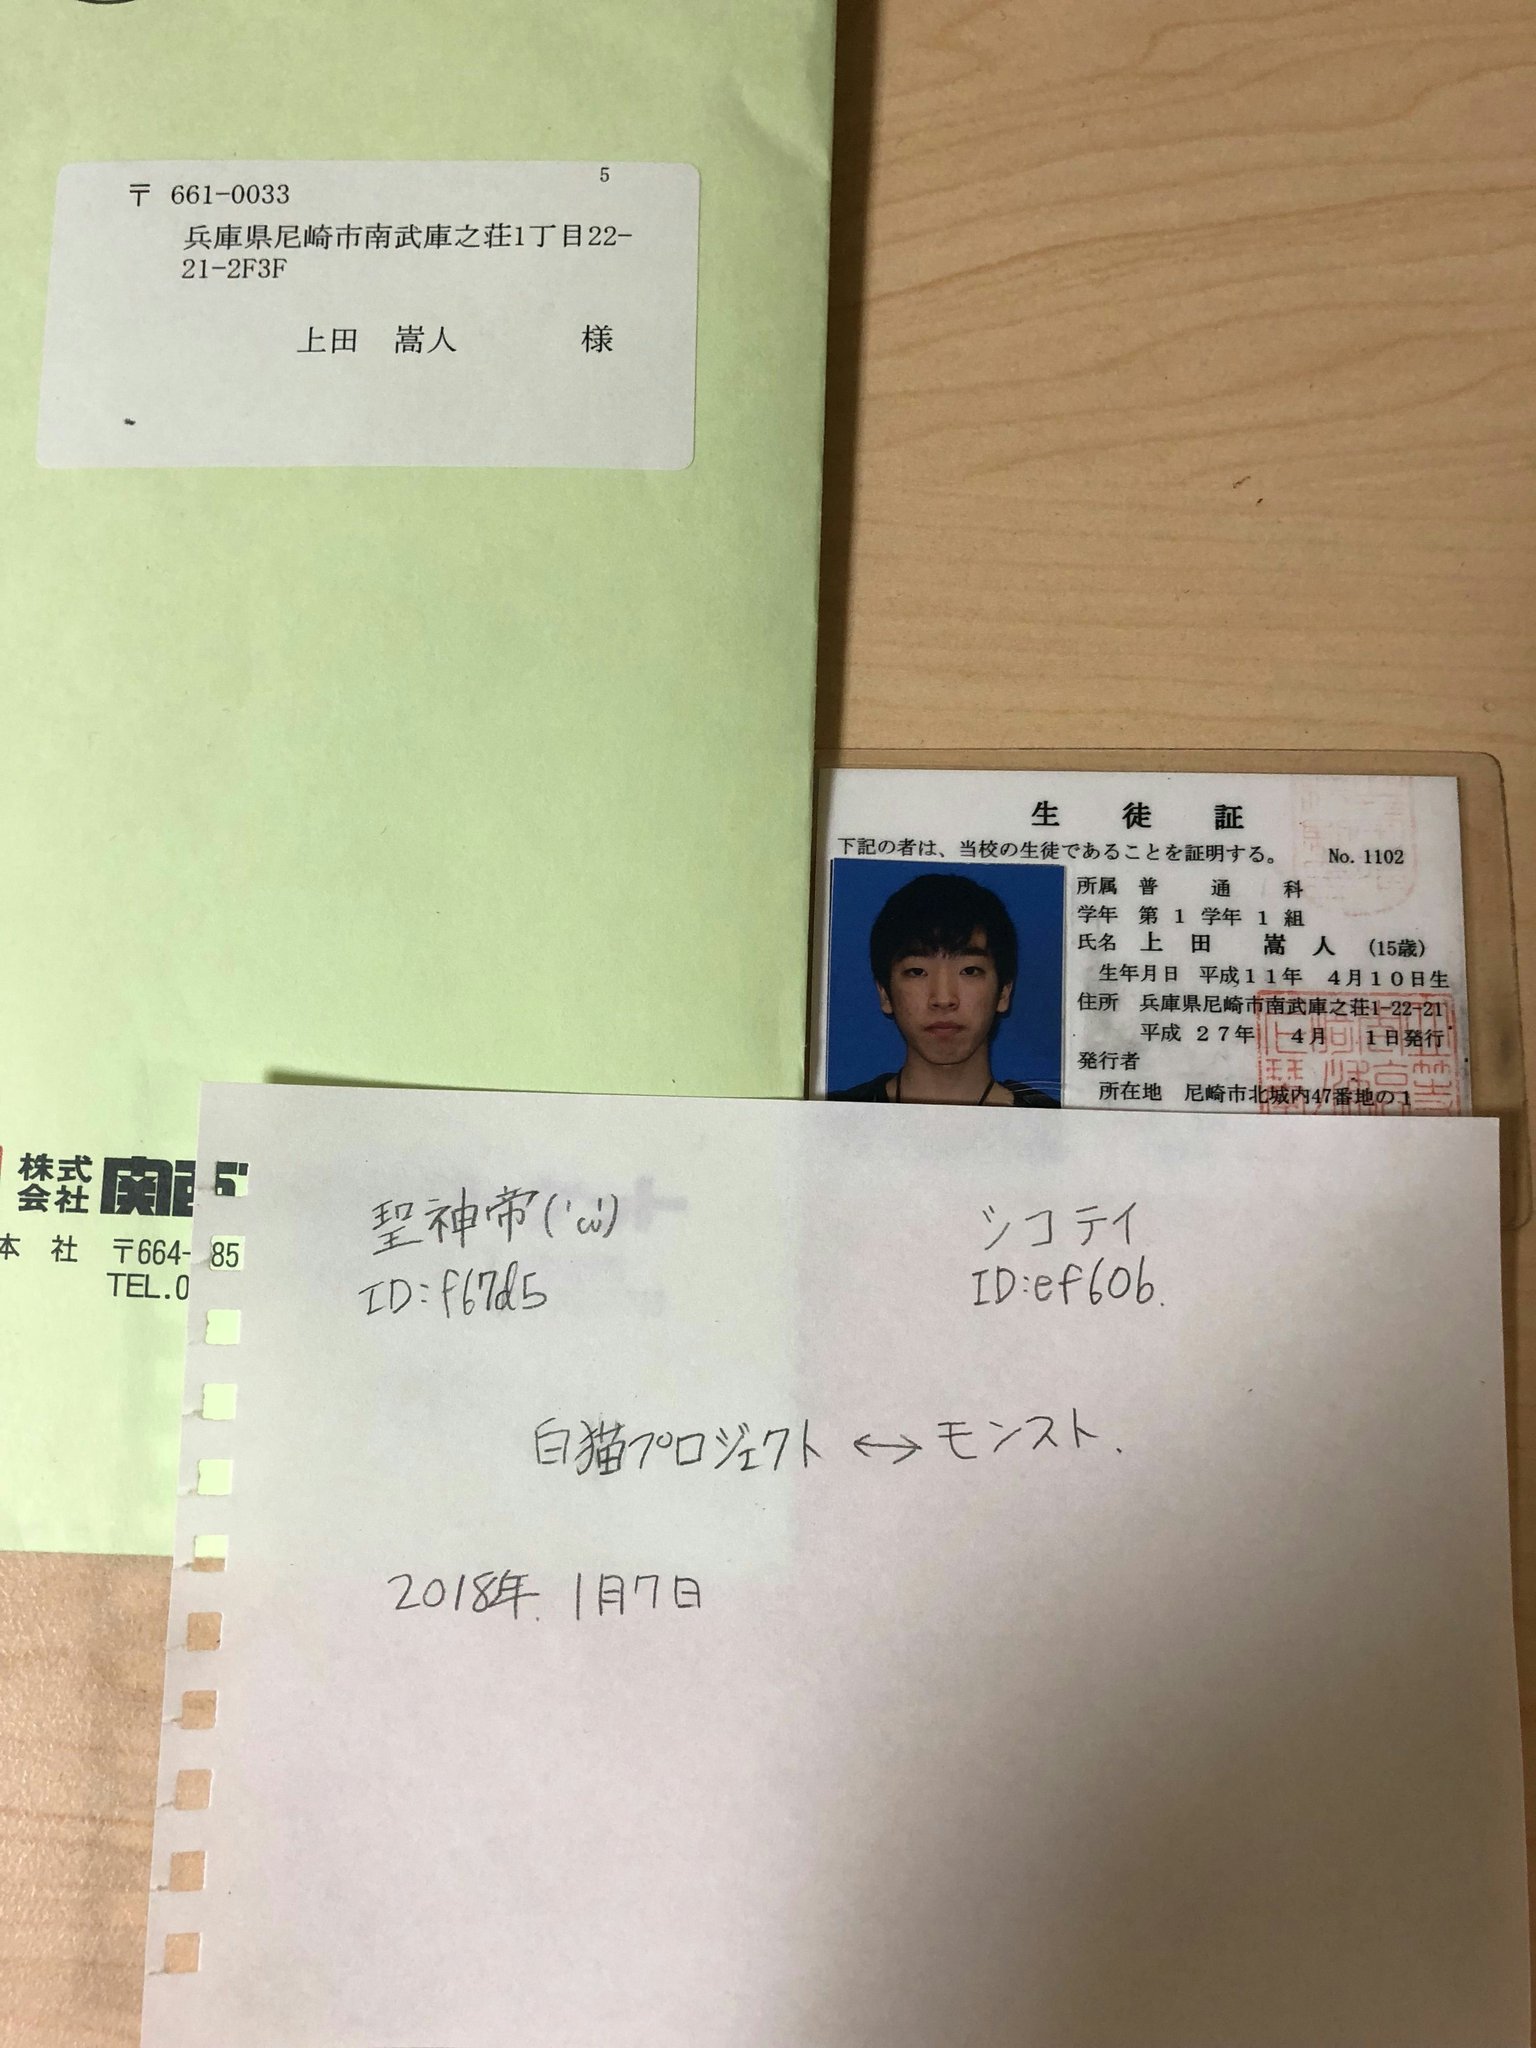 5
〒 661-0033
兵庫県尼崎市南武庫之荘1丁目22-
21-2F3F
上田 嵩人 様
生徒証
下記の者は、当校の生徒であることを証明する。 No.1102
所属 普通科
学年 第1学年1組
氏名 上田 嵩人 (15歳)
生年月日 平成11年 4月10日生
住所 兵庫県尼崎市南武庫之荘1-22-21
平成27年 4月 1日発行
発行者
所在地 尼崎市北城内47番地の1
株式
会社
本社 〒664- 85
TEL.0
聖神帝('ω')
ID:f67d5
シコティ
ID:ef60b.
白猫プロジェクト ↔ モンスト.
2018年. 1月7日